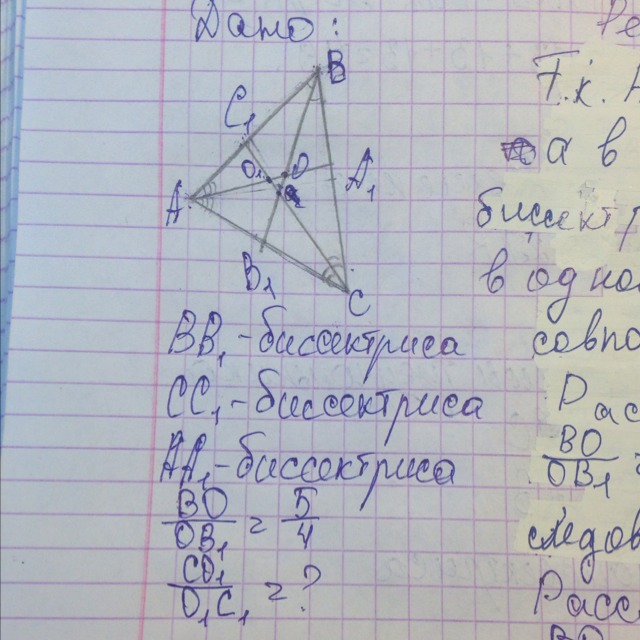 Дано:
B
C₁
O₁ O
A₁
A
B₁
C
BB₁ - биссектриса
CC₁ - биссектриса
AA₁ - биссектриса
BO/OB₁ = 5/4
CO₁/O₁C₁ = ?
Ре
Т.к. A
а в
биссектр
в одно
совпа
Рас
BO/OB₁
следов
Расс